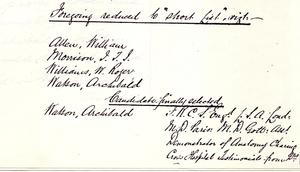 Foregoing reduced to "short list" viz:-
Allen, William
Morrison, J. T. J.
Williams, W. Roger
Watson, Archibald
Candidate finally selected
Watson, Archibald F.R.C.S. Eng. L.S.A. Lond.
M.D. Paris M.D. Gott: Asst
Demonstrator of Anatomy Charing
Cross Hospital Testimonials from